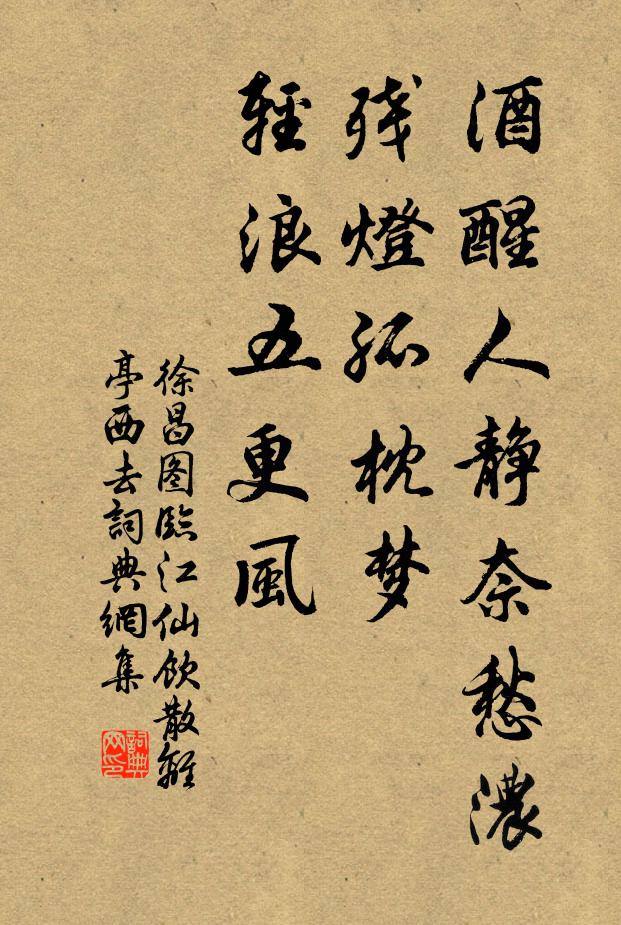 酒醒人静奈愁濃
残燈孤枕梦
輕浪五更風
徐昌图臨江仙飲散離
亭西去詞典網集
詞典
网印